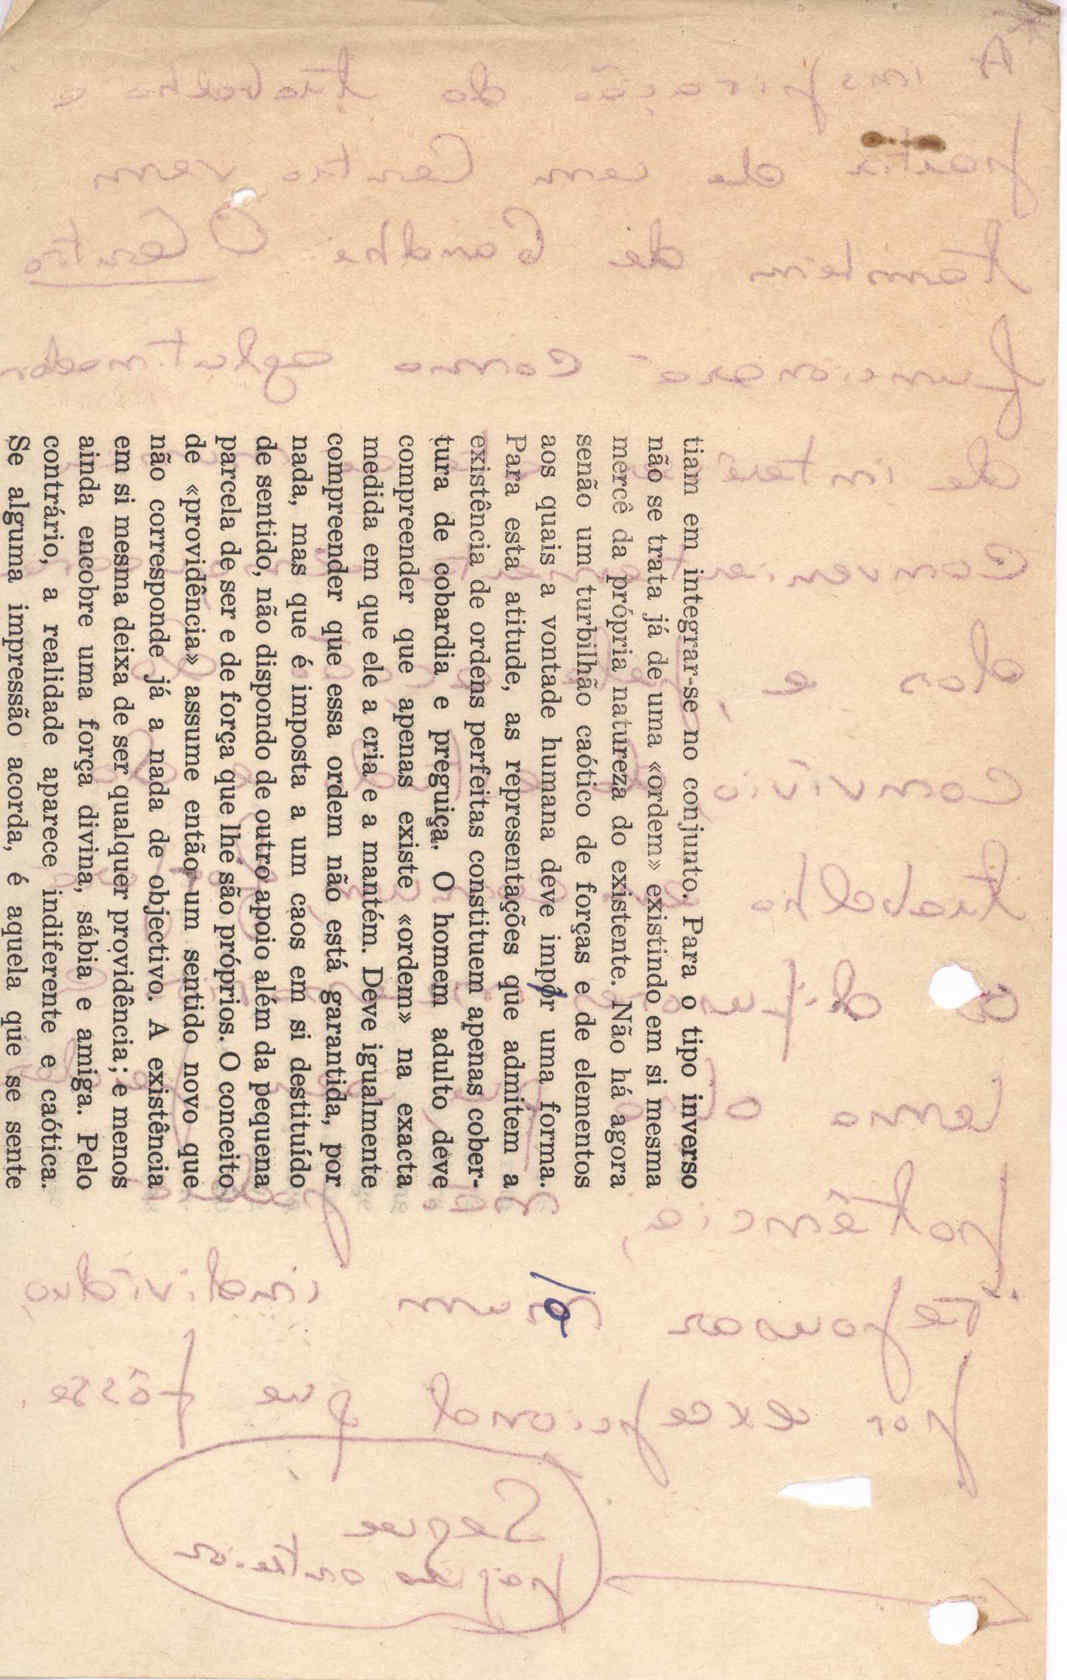 tiam em integrar-se no conjunto. Para o tipo inverso
não se trata já de uma «ordem» existindo em si mesma
mercê da própria natureza do existente. Não há agora
senão um turbilhão caótico de forças e de elementos
aos quais a vontade humana deve impor uma forma.
Para esta atitude, as representações que admitem a
existência de ordens perfeitas constituem apenas cober-
tura de cobardia e preguiça. O homem adulto deve
compreender que apenas existe «ordem» na exacta
medida em que ele a cria e a mantém. Deve igualmente
compreender que essa ordem não está garantida, por
nada, mas que é imposta a um caos em si destituído
de sentido, não dispondo de outro apoio além da pequena
parcela de ser e de força que lhe são próprios. O conceito
de «providência» assume então um sentido novo que
não corresponde já a nada de objectivo. A existência
em si mesma deixa de ser qualquer providência; e menos
ainda encobre uma força divina, sábia e amiga. Pelo
contrário, a realidade aparece indiferente e caótica.
Se alguma impressão acorda, é aquela que se sente
/o
A inspiração do trabalho e
partir de um Centro vem
também de Gandhi O Centro
funcionará como aglutinador
de
convivio
trabalho
potência,
repousar num individuo,
por excepcional que fôsse.
Segue
página anterior